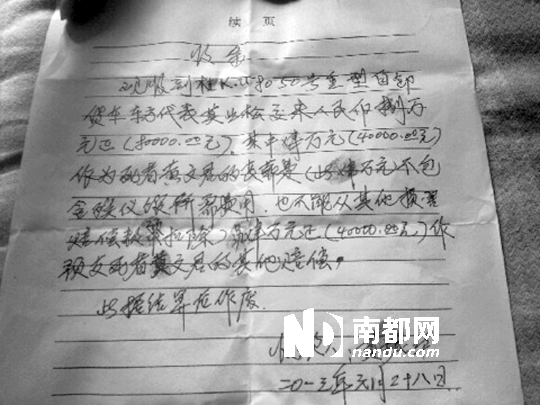 续页
收条
现收到桂K.58050号重型自卸
货车车方代表 交来人民币捌万
元正(80000.00元),其中肆万元(40000.00元)
作为死者黄文君的安葬 (此肆万元不包
含殡仪馆所需费用,也不能从其他损
赔偿款 扣除)肆万元正(40000.00元)作
预支死者黄文君的其他赔偿。
此据结算后作废。
收款人
二〇一三年元月二十八日
N 南都网
nandu.com